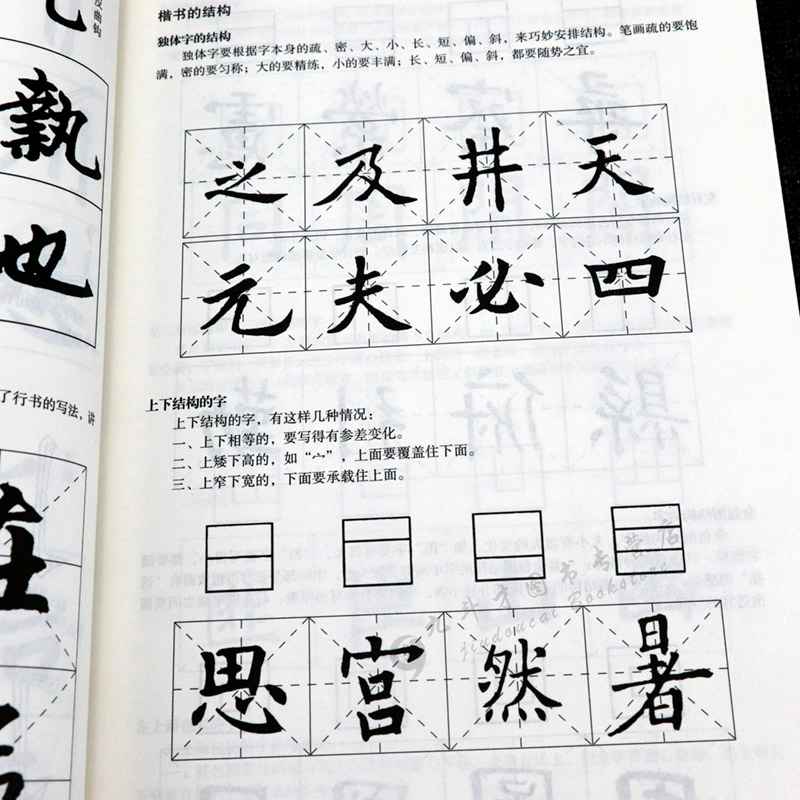 反曲钩
執
也
了行书的写法，讲
楷书的结构
独体字的结构
独体字要根据字本身的疏、密、大、小、长、短、偏、斜，来巧妙安排结构。笔画疏的要饱
满，密的要匀称；大的要精练，小的要丰满；长、短、偏、斜，都要随势之宜。
之及井天
元夫必四
上下结构的字
上下结构的字，有这样几种情况：
一、上下相等的，要写得有参差变化。
二、上矮下高的，如“宀”，上面要覆盖住下面。
三、上窄下宽的，下面要承载住上面。
九斗才图书专营店
jiudoucai Bookstore
思宫然暑